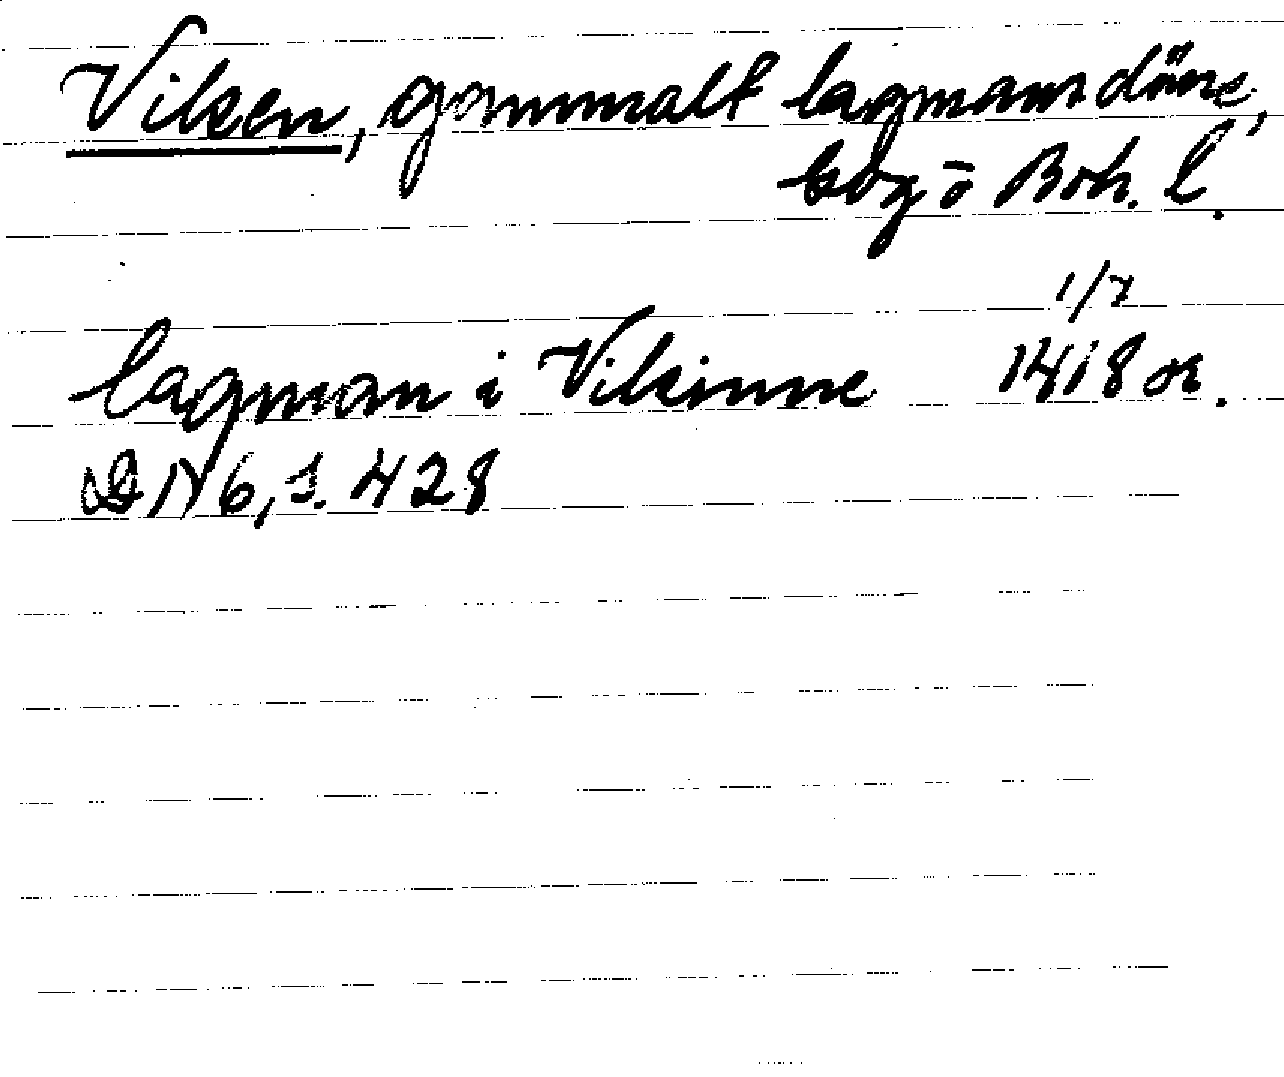 Viken, gammalt lagmansdöme,
Gbg o Boh. l.
lagman i Vikinne 1/7 1418 or.
DN 6, s. 428